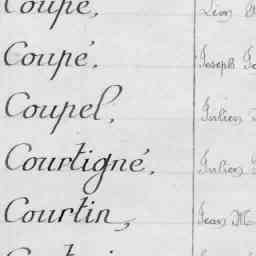 Coupé, Léon
Coupé, Joseph
Coupel, Julien
Courtigné, Julien
Courtin, Jean M